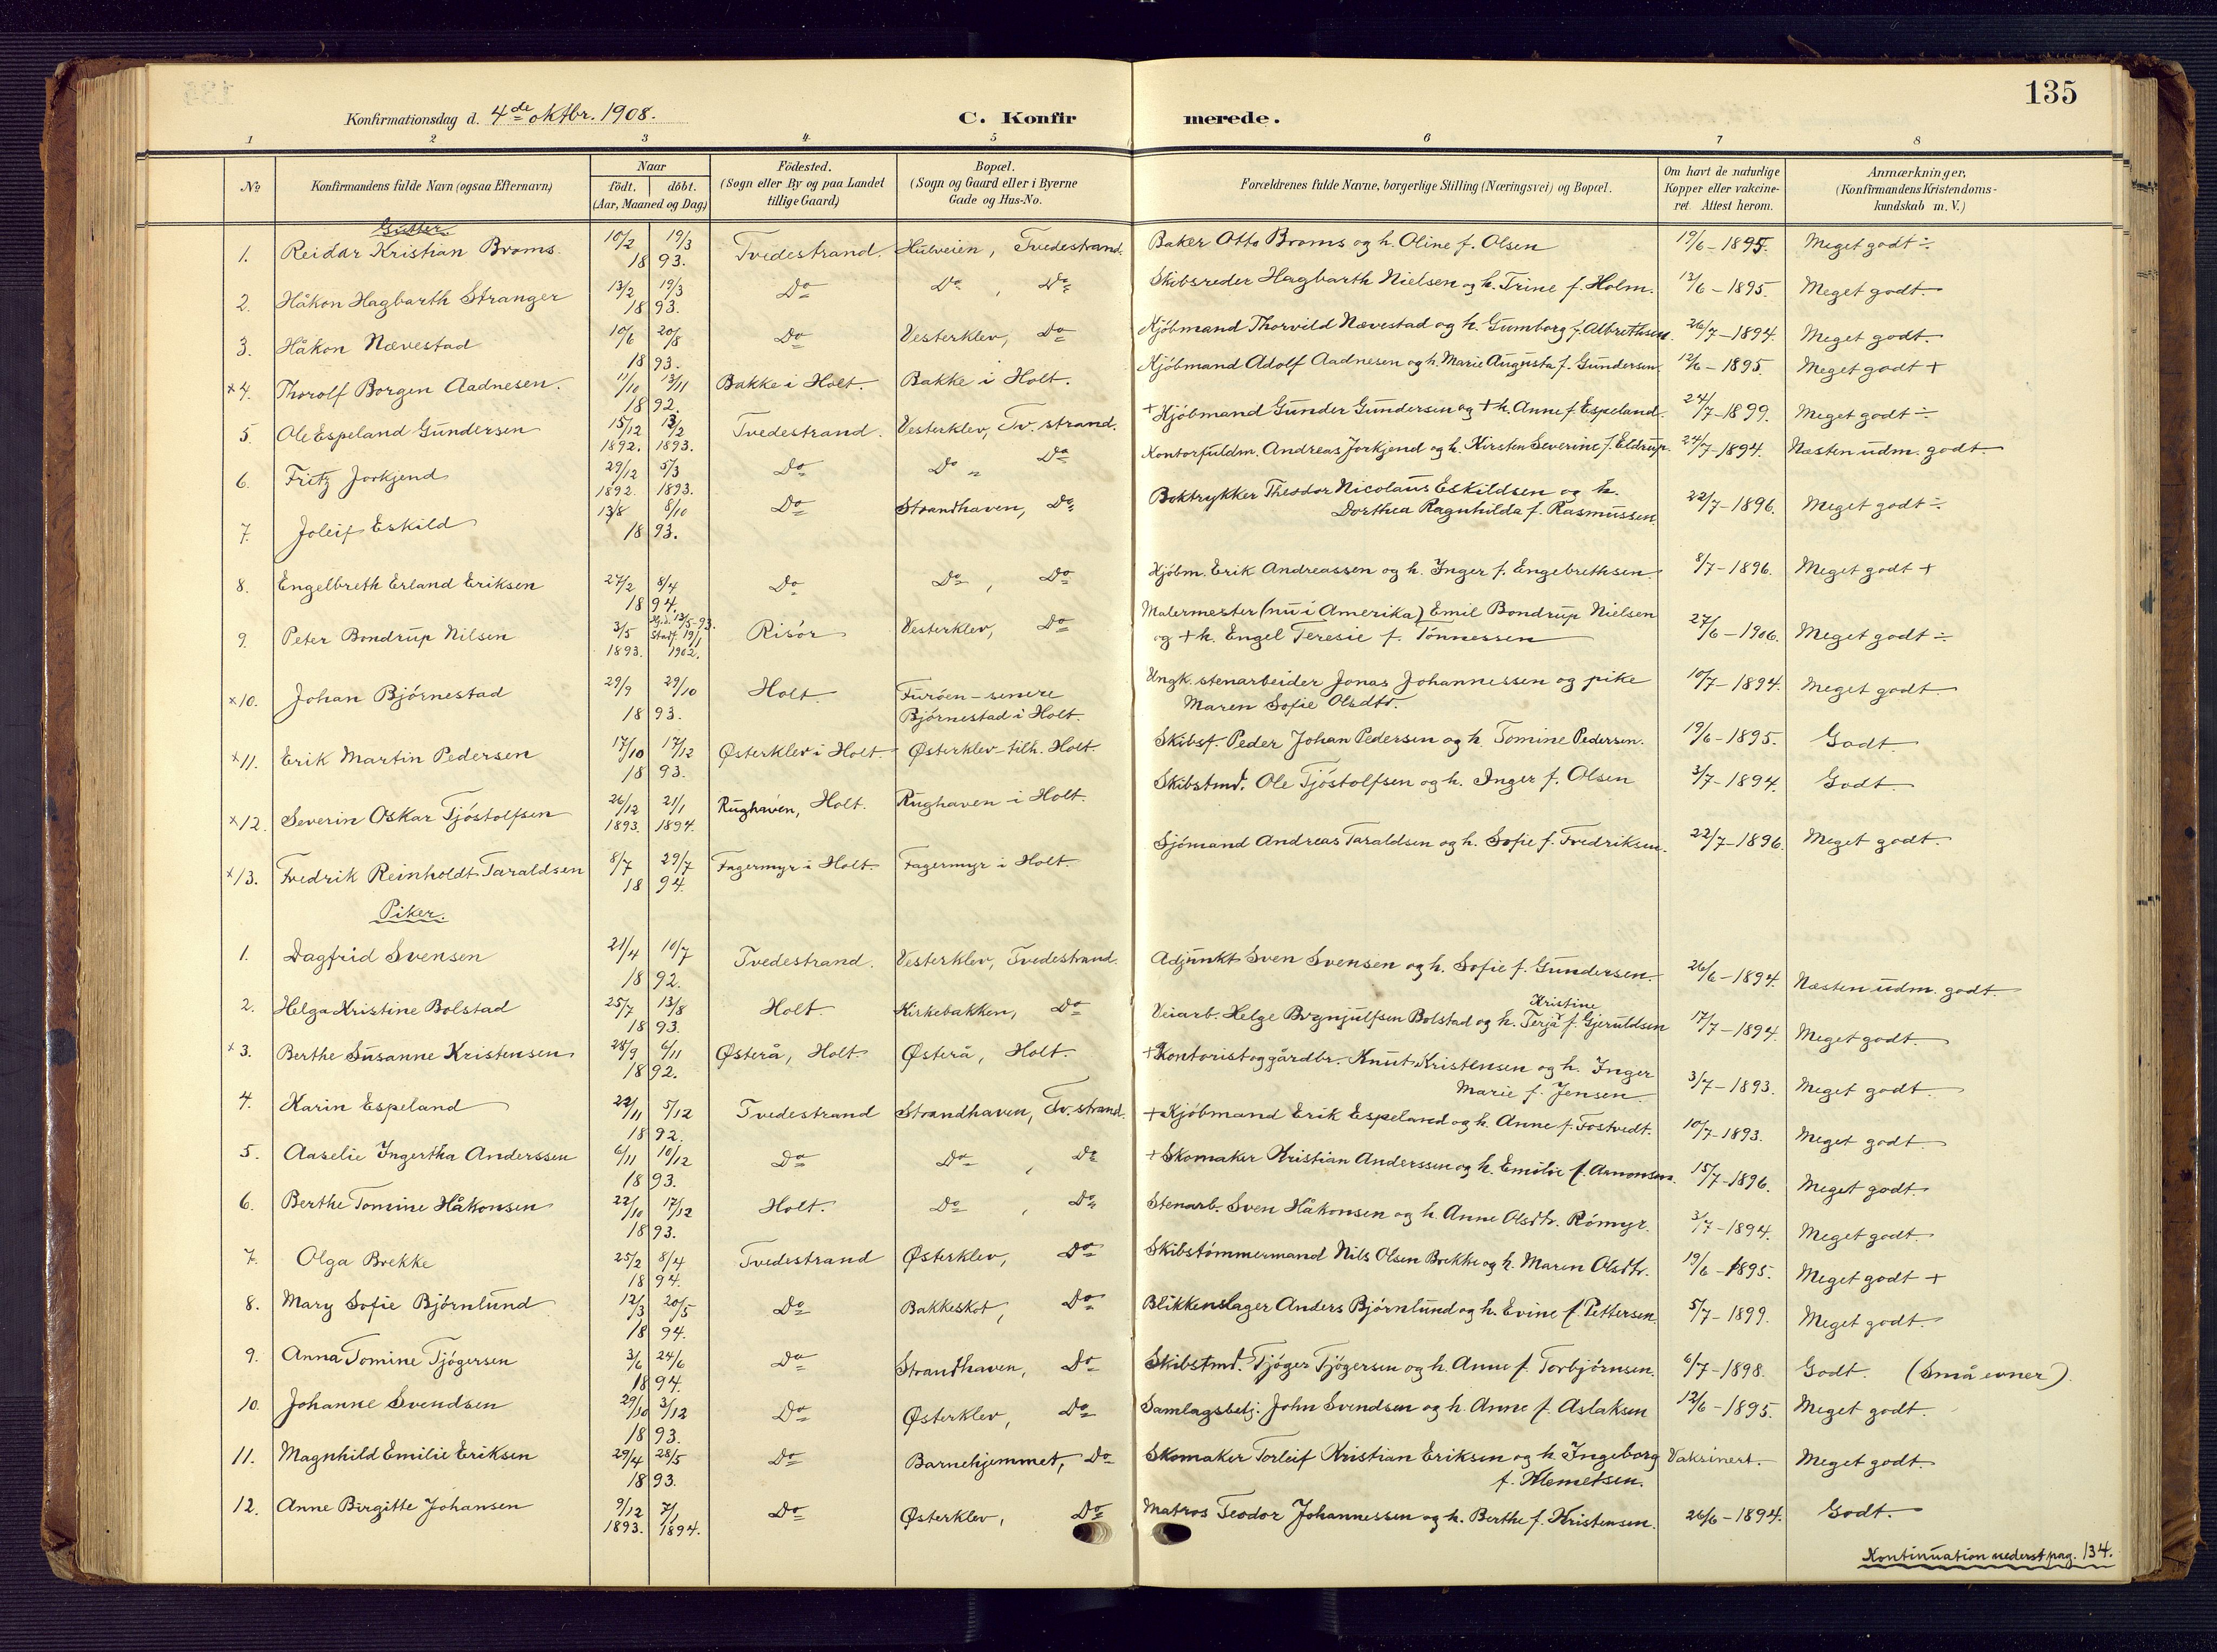 135
Konfirmationsdag d. 4de oktbr. 1908.
C. Konfirmerede.
1 2 3 4 5 6 7 8
No
Konfirmandens fulde Navn (ogsaa Efternavn)
Naar
födt. döbt.
(Aar, Maaned og Dag)
Födested.
(Sogn eller By og paa Landet
tillige Gaard)
Bopæl.
(Sogn og Gaard eller i Byerne
Gade og Hus-No.
Forældrenes fulde Navne, borgerlige Stilling (Næringsvei) og Bopæl.
Om havt de naturlige
Kopper eller vakcine-
ret. Attest herom.
Anmærkninger,
(Konfirmandens Kristendoms-
kundskab m. V.)
Gutter
1. Reidar Kristian Broms. 10/2 19/3 1893. Tvedestrand. Hulveien, Tvedestrand. Baker Otto Broms og h. Oline f. Olsen 19/6-1895. Meget godt ÷
2. Håkon Hagbarth Stranger 13/2 19/3 1893. Do Do, Do Skibsreder Hagbarth Nielsen og h. Trine f. Holm. 13/6-1895. Meget godt.
3. Håkon Nævestad 10/6 20/8 1893. Do Vesterklev, Do Kjöbmand Thorvild Nævestad og h. Gumborg f. Albrethsen. 26/7-1894. Meget godt.
×4. Thorolf Borgen Aadnesen. 11/10 13/11 1892. Bakke i Holt. Bakke i Holt. Kjöbmand Adolf Aadnesen og h. Marie Augusta f. Gundersen. 12/6-1895. Meget godt +
5. Ole Espeland Gundersen 15/12 1892. 13/2 1893. Tvedestrand. Vesterklev, Tv.strand. + Kjöbmand Gunder Gundersen og + h. Anne f. Espeland. 24/7-1899. Meget godt ÷
6. Fritz Jorkjend 29/12 1892. 5/3 1893. Do Do " Do Kontorfuldm. Andreas Jorkjend og h. Kirsten Severine f. Eldrup. 24/7-1894. Næsten udm. godt.
7. Joleif Eskild 13/8 8/10 1893. Do Strandhaven, Do Boktrykker Theodor Nicolaus Eskildsen og h.
Dorthea Ragnhilda f. Rasmussen. 22/7-1896. Meget godt ÷
8. Engelbreth Erland Eriksen 27/2 8/4 1894. Do Do, Do Kjöbm. Erik Andreassen og h. Inger f. Engebrethsen. 8/7-1896. Meget godt +
9. Peter Bondrup Nilsen 3/5 1893. Hjd. 13/5-93. Stadf. 19/1 1902. Risör Vesterklev, Do Malermester (nu i Amerika) Emil Bondrup Nielsen
og + h. Engel Teresie f. Tönnessen 27/6-1906. Meget godt ÷
×10. Johan Björnestad 29/9 29/10 1893. Holt. Furöen - senere
Björnestad i Holt. Ungk. stenarbeider Jonas Johannessen og pike
Maren Sofie Olsdtr. 10/7-1894. Meget godt.
×11. Erik Martin Pedersen 17/10 17/12 1893. Østerklev i Holt. Østerklev tilh. Holt. Skibsf. Peder Johan Pedersen og h. Tomine Pedersen. 19/6-1895. Godt
×12. Severin Oskar Tjöstolfsen 26/12 1893. 21/1 1894. Rughaven, Holt. Rughaven i Holt. Skibstmd. Ole Tjöstolfsen og h. Inger f. Olsen 3/7-1894. Godt
×13. Fredrik Reinholdt Taraldsen 8/7 29/7 1894. Fagermyr i Holt. Fagermyr i Holt. Sjömand Andreas Taraldsen og h. Sofie f. Fredriksen. 22/7-1896. Meget godt.
Piker.
1. Dagfrid Svensen 21/4 10/7 1892. Tvedestrand. Vesterklev, Tvedestrand. Adjunkt Sven Svensen og h. Sofie f. Gundersen. 26/6-1894. Næsten udm. godt.
2. Helga Kristine Bolstad 25/7 13/8 1893. Holt. Kirkebakken, Do Veiarb. Helge Brynjulfsen Bolstad og h. Terja Kristine f. Gjeruldsen 17/7-1894. Meget godt.
×3. Berthe Susanne Kristensen 28/9 6/11 1892. Østerå, Holt. Østerå, Holt. + Kontorist og gårdbr. Knut Kristensen og h. Inger
Marie f. Jensen 3/7-1893. Meget godt
4. Karin Espeland 22/11 5/12 1892. Tvedestrand Strandhaven, Tv.strand. + Kjöbmand Erik Espeland og h. Anne f. Fostvedt. 10/7-1893. Meget godt
5. Aaselie Ingertha Anderssen 6/11 10/12 1893. Do Do, Do + Skomaker Kristian Anderssen og h. Emilie f. Arnonsen. 15/7-1896. Meget godt.
6. Berthe Tomine Håkonsen 22/10 17/12 1893. Holt. Do, Do Stenarb. Sven Håkonsen og h. Anne Olsdtr. Römyr. 3/7-1894. Meget godt.
7. Olga Brekke 25/2 8/4 1894. Tvedestrand Østerklev, Do Skibstömmermand Nils Olsen Brekke og h. Maren Olsdtr. 19/6-1895. Meget godt +
8. Mary Sofie Björnlund 12/3 20/5 1894. Do Bakkeskot, Do Blikkenslager Anders Björnlund og h. Evine f. Pettersen. 5/7-1899. Meget godt.
9. Anna Tomine Tjögersen 3/6 24/6 1894. Do Strandhaven, Do Skibstmd. Tjöger Tjögersen og h. Anne f. Torbjörnsen. 6/7-1898. Godt. (Små evner).
10. Johanne Svendsen 29/10 3/12 1893. Do Østerklev, Do Samlagsbetj. John Svendsen og h. Anne f. Aslaksen 12/6-1895. Meget godt.
11. Magnhild Emilie Eriksen 29/4 28/5 1893. Do Barnehjemmet, Do Skomaker Torleif Kristian Eriksen og h. Ingeborg
f. Klemetsen. Vaksinert. Meget godt.
12. Anne Birgitte Johansen 9/12 1893. 7/1 1894. Do Østerklev, Do Matros Teodor Johannessen og h. Berthe f. Kristensen. 26/6-1894. Godt.
Kontinuation nederst pag. 134.